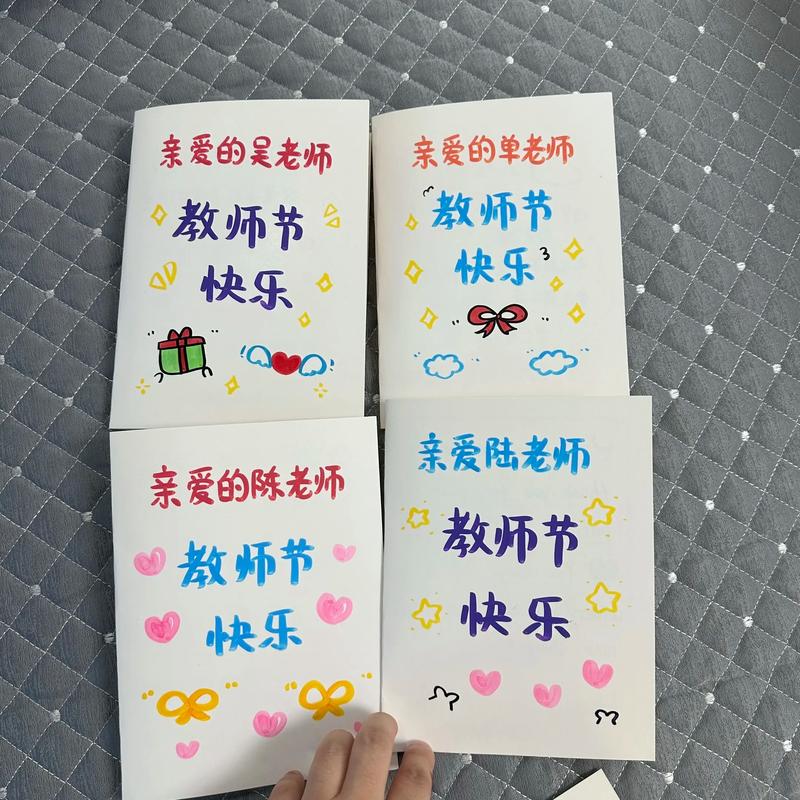 亲爱的吴老师
教师节
快乐
亲爱的单老师
教师节
快乐
亲爱的陈老师
教师节
快乐
亲爱陆老师
教师节
快乐